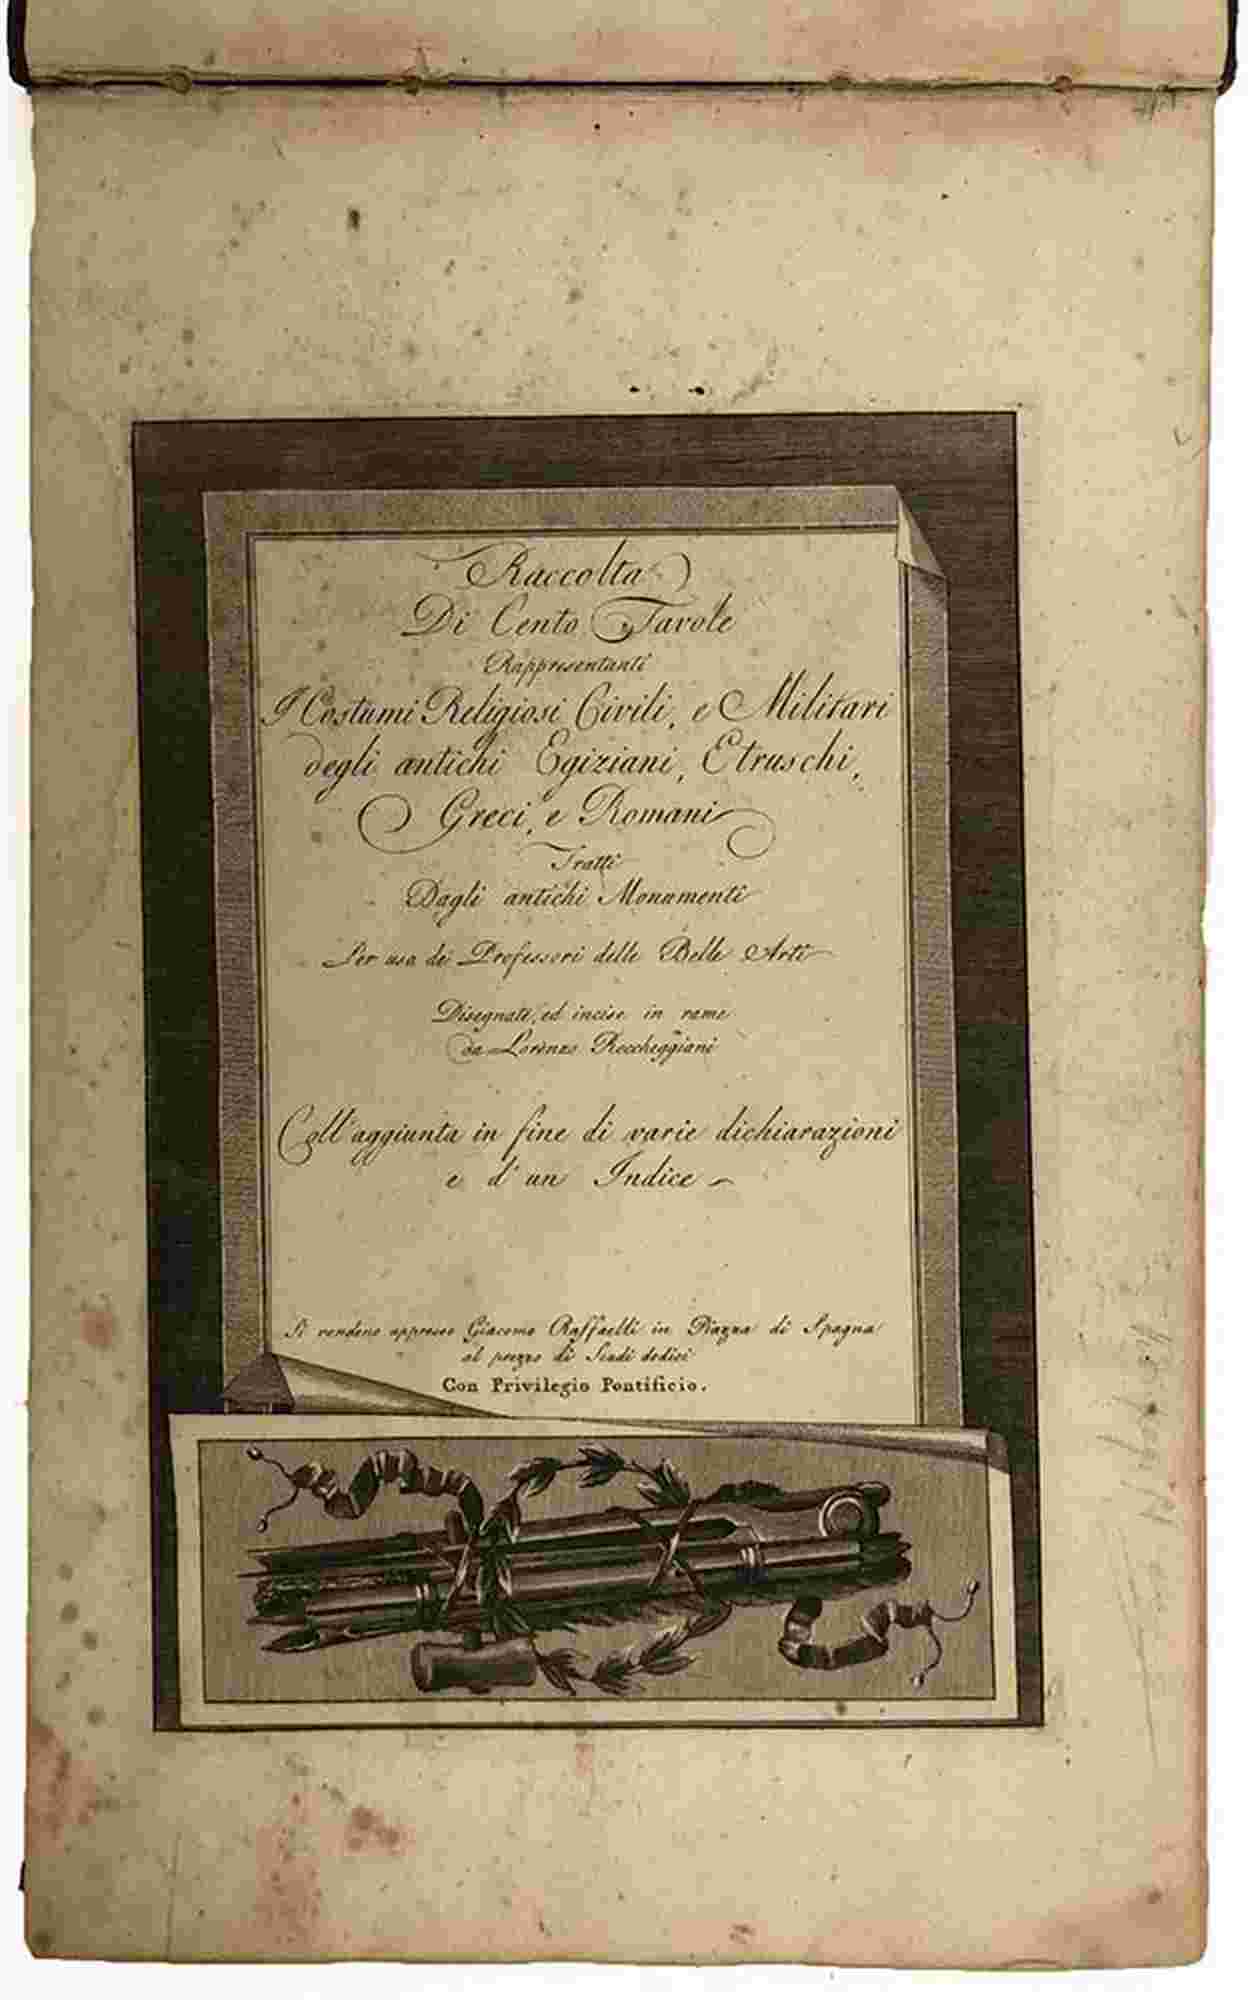 Raccolta
Di Cento Tavole
Rappresentanti
I Costumi Religiosi Civili, e Militari
degli antichi Egiziani, Etruschi,
Greci, e Romani
Tratti
Dagli antichi Monumenti
Per uso de' Professori delle Belle Arti
Disegnate, ed incise in rame
da Lorenzo Roccheggiani
Coll'aggiunta in fine di varie dichiarazioni
e d'un Indice
Si vendono appresso Giacomo Raffaelli in Piazza di Spagna
al prezzo di Scudi dodici
Con Privilegio Pontificio.